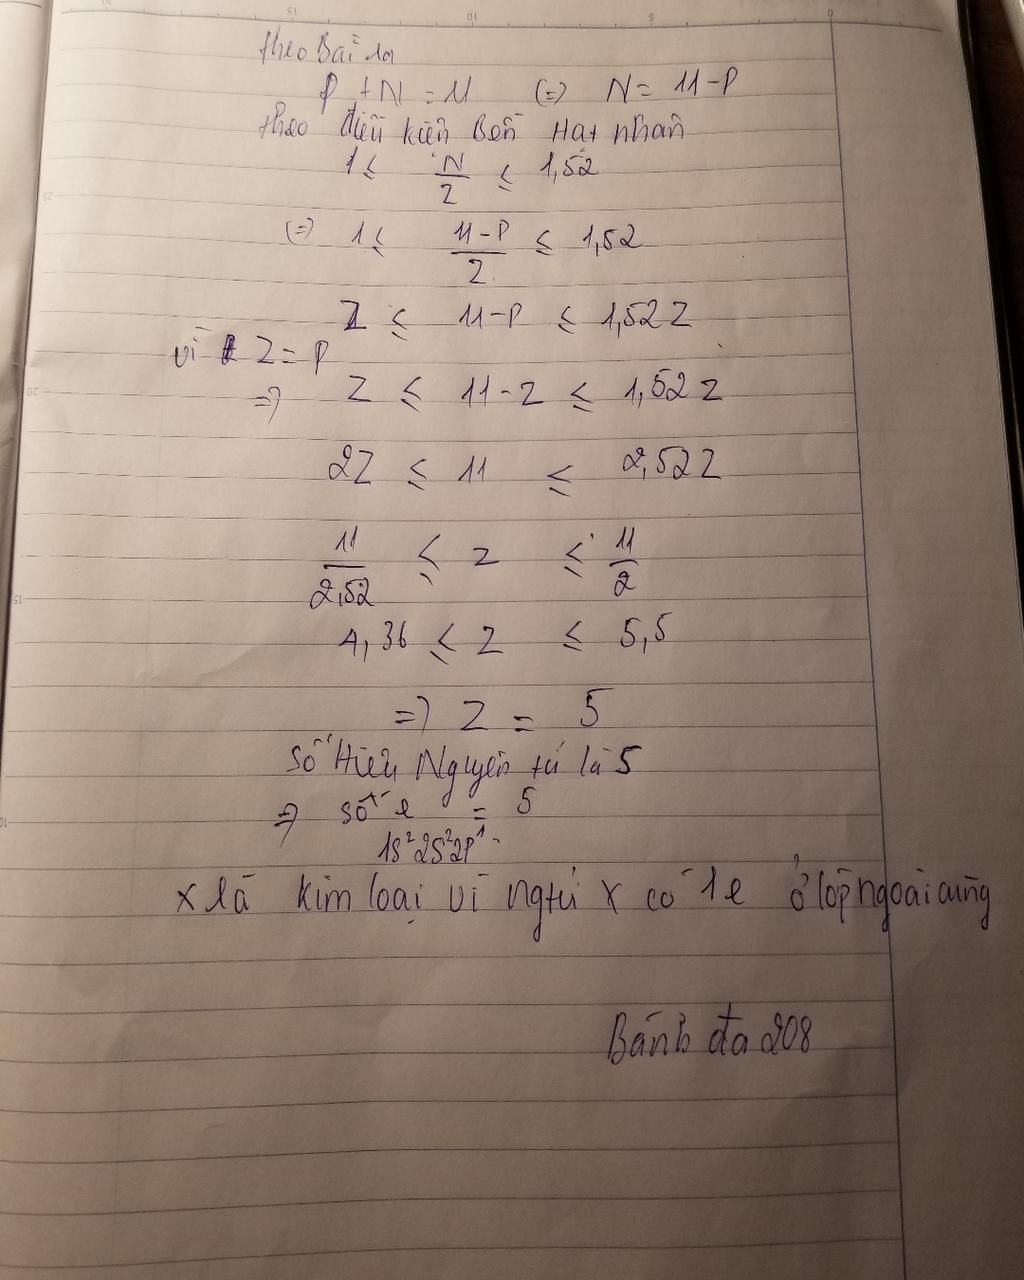 theo Bài ra
P + N = 11 (=) N = 11-P
theo điều kiện Bền Hạt nhân
1 ≤ N/Z ≤ 1,52
(=) 1 ≤ 11-P/Z ≤ 1,52
Z ≤ 11-P ≤ 1,52Z
vì Z = P
=> Z ≤ 11-Z ≤ 1,52Z
2Z ≤ 11 ≤ 2,52Z
11/2,52 ≤ Z ≤ 11/2
4,36 ≤ Z ≤ 5,5
=> Z = 5
Số Hiệu Nguyên tử là 5
=> số e = 5
1s²2s²2p¹
X là kim loại vì ngtử X có 1e ở lớp ngoài cùng
Bánh đa 208